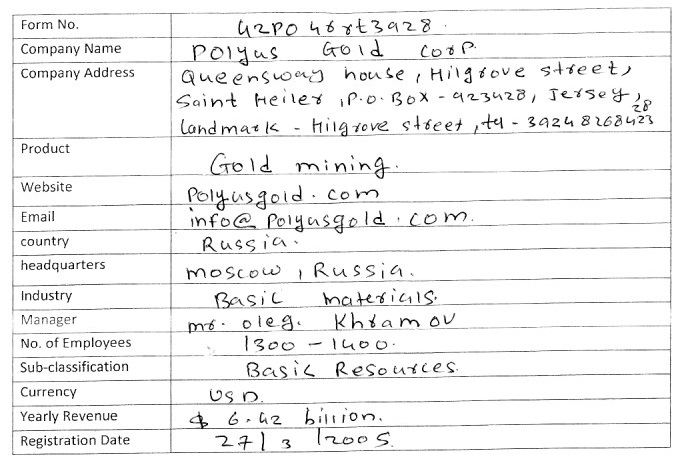 Form No. 42PO46rt3928.
Company Name Polyus Gold Corp.
Company Address Queensway house, Hilgrove street,
Saint Helier, P.O. Box - 423428, Jersey,
Landmark - Hilgrove street, t4 - 39248268423
28
Product Gold mining.
Website Polyusgold.com
Email info@Polyusgold.com.
country Russia.
headquarters moscow, Russia.
Industry Basic materials.
Manager mr. oleg. Khramov
No. of Employees 1300 - 1400.
Sub-classification Basic Resources.
Currency USD.
Yearly Revenue $ 6.42 billion.
Registration Date 27/3/2005.